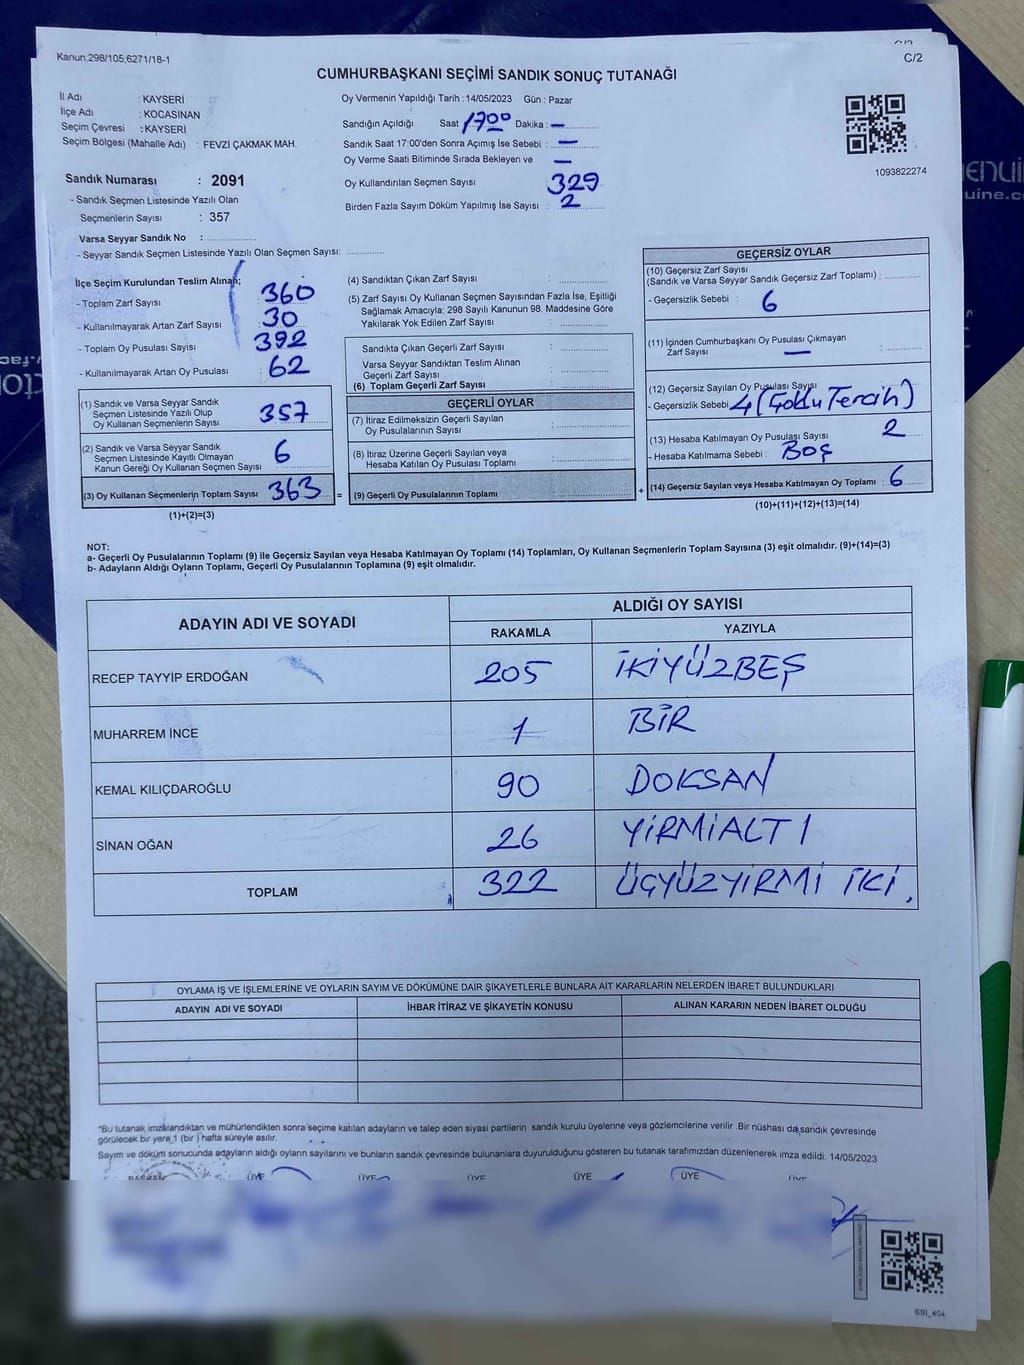 Kanun;298/105,6271/18-1
C/2
CUMHURBAŞKANI SEÇİMİ SANDIK SONUÇ TUTANAĞI
İl Adı : KAYSERİ
İlçe Adı : KOCASİNAN
Seçim Çevresi : KAYSERİ
Seçim Bölgesi (Mahalle Adı) : FEVZİ ÇAKMAK MAH.
Sandık Numarası : 2091
- Sandık Seçmen Listesinde Yazılı Olan
Seçmenlerin Sayısı : 357
Varsa Seyyar Sandık No :
- Seyyar Sandık Seçmen Listesinde Yazılı Olan Seçmen Sayısı:
Oy Vermenin Yapıldığı Tarih :14/05/2023 Gün : Pazar
Sandığın Açıldığı Saat 1700 Dakika : —
Sandık Saat 17.00'den Sonra Açımış İse Sebebi : —
Oy Verme Saati Bitiminde Sırada Bekleyen ve —
Oy Kullandırılan Seçmen Sayısı 329
Birden Fazla Sayım Döküm Yapılmış İse Sayısı : 2
1093822274
İlçe Seçim Kurulundan Teslim Alınan;
- Toplam Zarf Sayısı 360
- Kullanılmayarak Artan Zarf Sayısı 30
- Toplam Oy Pusulası Sayısı 392
- Kullanılmayarak Artan Oy Pusulası 62
(1) Sandık ve Varsa Seyyar Sandık
Seçmen Listesinde Yazılı Olup
Oy Kullanan Seçmenlerin Sayısı 357
(2) Sandık ve Varsa Seyyar Sandık
Seçmen Listesinde Kayıtlı Olmayan
Kanun Gereği Oy Kullanan Seçmen Sayısı 6
(3) Oy Kullanan Seçmenlerin Toplam Sayısı 363 =
(1)+(2)=(3)
(4) Sandıktan Çıkan Zarf Sayısı :
(5) Zarf Sayısı Oy Kullanan Seçmen Sayısından Fazla İse, Eşitliği
Sağlamak Amacıyla; 298 Sayılı Kanunun 98. Maddesine Göre
Yakılarak Yok Edilen Zarf Sayısı :
Sandıkta Çıkan Geçerli Zarf Sayısı :
Varsa Seyyar Sandıktan Teslim Alınan
Geçerli Zarf Sayısı :
(6) Toplam Geçerli Zarf Sayısı :
GEÇERLİ OYLAR
(7) İtiraz Edilmeksizin Geçerli Sayılan
Oy Pusulalarının Sayısı :
(8) İtiraz Üzerine Geçerli Sayılan veya
Hesaba Katılan Oy Pusulası Toplamı :
(9) Geçerli Oy Pusulalarının Toplamı : +
GEÇERSİZ OYLAR
(10) Geçersiz Zarf Sayısı
(Sandık ve Varsa Seyyar Sandık Geçersiz Zarf Toplamı) :
- Geçersizlik Sebebi : 6
(11) İçinden Cumhurbaşkanı Oy Pusulası Çıkmayan
Zarf Sayısı — :
(12) Geçersiz Sayılan Oy Pusulası Sayısı
- Geçersizlik Sebebi 4 (Çoklu Tercih)
(13) Hesaba Katılmayan Oy Pusulası Sayısı 2
- Hesaba Katılmama Sebebi : BOŞ
(14) Geçersiz Sayılan veya Hesaba Katılmayan Oy Toplamı : 6
(10)+(11)+(12)+(13)=(14)
NOT:
a- Geçerli Oy Pusulalarının Toplamı (9) ile Geçersiz Sayılan veya Hesaba Katılmayan Oy Toplamı (14) Toplamları, Oy Kullanan Seçmenlerin Toplam Sayısına (3) eşit olmalıdır. (9)+(14)=(3)
b- Adayların Aldığı Oyların Toplamı, Geçerli Oy Pusulalarının Toplamına (9) eşit olmalıdır.
ADAYIN ADI VE SOYADI
ALDIĞI OY SAYISI
RAKAMLA YAZIYLA
RECEP TAYYİP ERDOĞAN 205 İKİYÜZBEŞ
MUHARREM İNCE 1 BİR
KEMAL KILIÇDAROĞLU 90 DOKSAN
SİNAN OĞAN 26 YİRMİALTI
TOPLAM 322 ÜÇYÜZYİRMİ İKİ.
OYLAMA İŞ VE İŞLEMLERİNE VE OYLARIN SAYIM VE DÖKÜMÜNE DAİR ŞİKAYETLERLE BUNLARA AİT KARARLARIN NELERDEN İBARET BULUNDUKLARI
ADAYIN ADI VE SOYADI İHBAR İTİRAZ VE ŞİKAYETİN KONUSU ALINAN KARARIN NEDEN İBARET OLDUĞU
*Bu tutanak imzalandıktan ve mühürlendikten sonra seçime katılan adayların ve talep eden siyasi partilerin sandık kurulu üyelerine veya gözlemcilerine verilir .Bir nüshası da sandık çevresinde
görülecek bir yere 1 (bir ) hafta süreyle asılır.
Sayım ve döküm sonucunda adayların aldığı oyların sayılarını ve bunların sandık çevresinde bulunanlara duyurulduğunu gösteren bu tutanak tarafımızdan düzenlenerek imza edildi. 14/05/2023
BAŞKAN ÜYE ÜYE ÜYE ÜYE ÜYE ÜYE
SSI_404